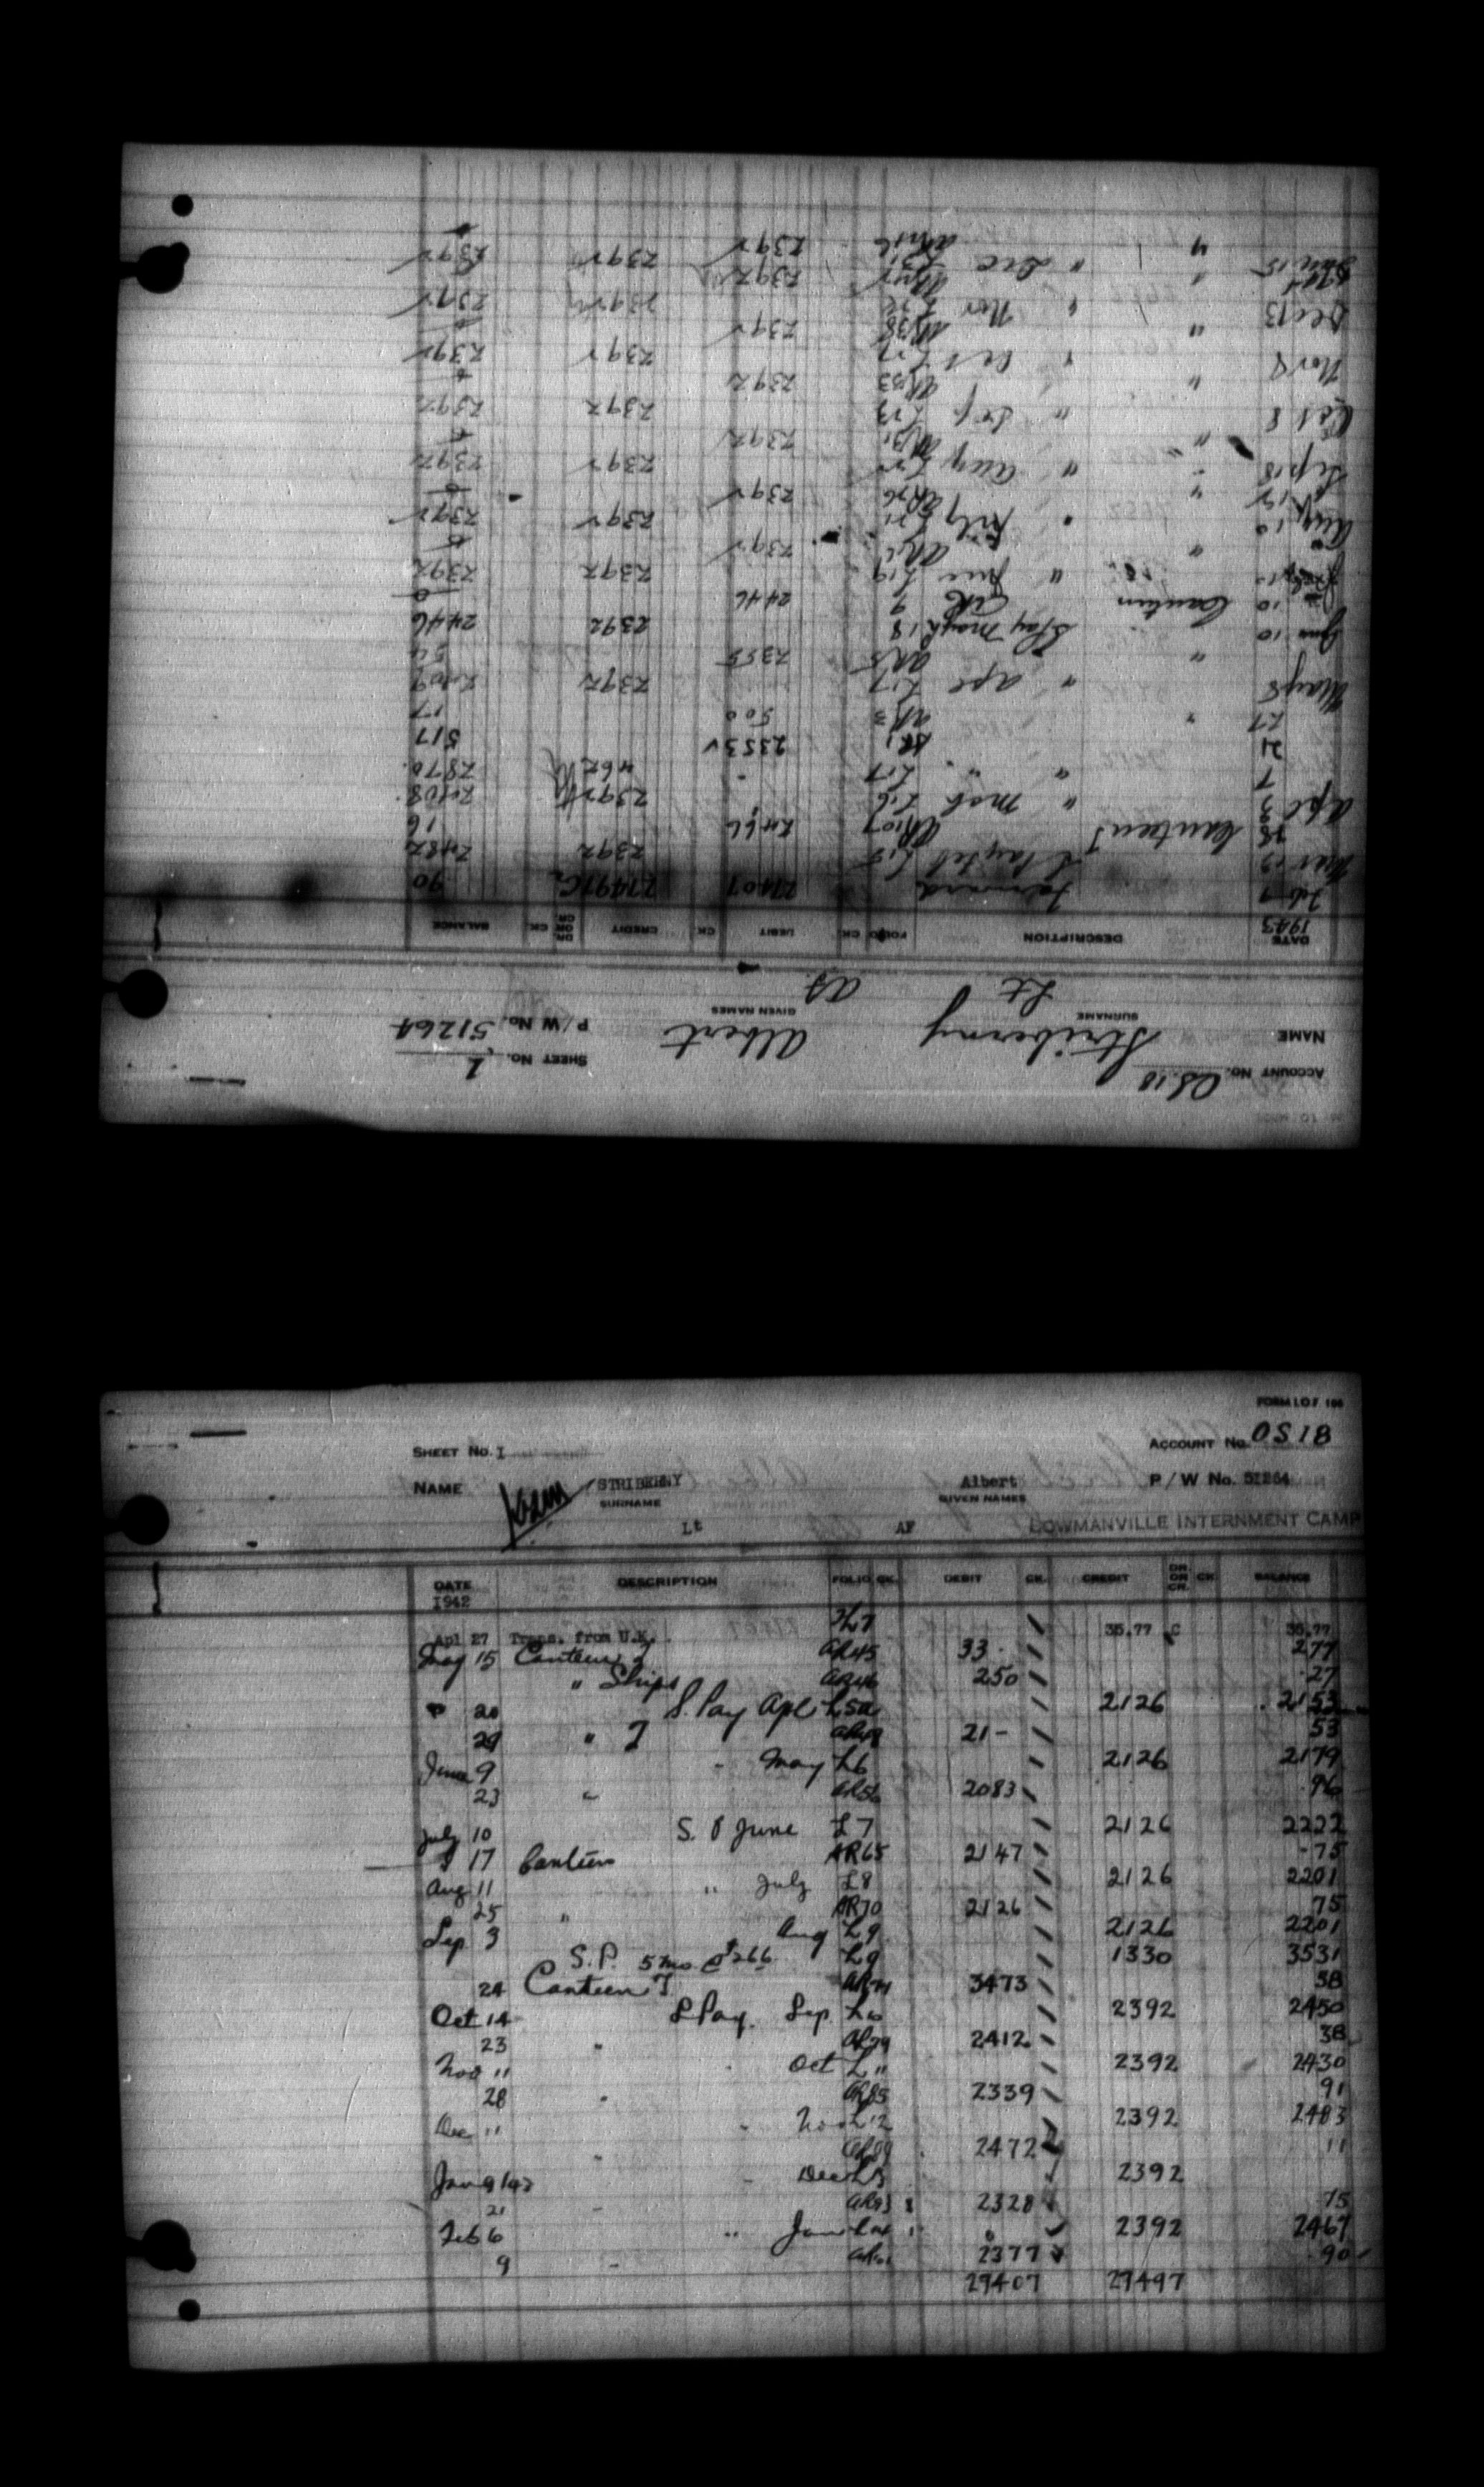 ACCOUNT No. OS.18
SHEET No. 2
NAME Striberny Albert P/W No. 51264
SURNAME GIVEN NAMES
Lt
DATE DESCRIPTION FOLIO CK. DEBIT CK. CREDIT DR. OR CR. CK. BALANCE
1943
Feb 9 Forward 27407 27497 C 90
Mar 19 S Pay Feb L15 2392 2482
Canteen T AR107 2466 16
Apl 3 " Mch L16 2392 2408
7 " " L17 462 2870
21 AR1 2353 517
27 " AR3 500 17
May 8 " Apl L17 2392 2409
" AR5 2355 54
June 10 S Pay May L18 2392 2446
10 Canteen AR9 2446 0
" June L19 2392 2392
" 2392
Aug 10 " July L21 2392 2392
" AR26 2392
Sep 18 " Aug 2392 2392
" AR31 2392
Oct 8 " Sep L23 2392 2392
" AR33 2392
Nov 8 " Oct 2392 2392
" AR38 2392
Dec 13 " Nov 2392 2392
" 2392
Jan 15 " Dec 2392 2392
" 2392
FORM I.O.F 106
SHEET No. I ACCOUNT No. OS18
NAME STRIBERNY Albert P/W No. 51264
SURNAME GIVEN NAMES
Lt AF BOWMANVILLE INTERNMENT CAMP
DATE DESCRIPTION FOLIO CK. DEBIT CK. CREDIT DR. OR CR. CK. BALANCE
1942
Apl 27 Trans. from U.K. 35.77 C 35.77
May 15 Canteen T AR45 33 - 277
" Ships AR46 250 27
20 S. Pay Apl L5a 2126 2153
29 " T AR48 21 - 53
June 9 " May L6 2126 2179
23 " AR56 2083 96
July 10 S. P June L7 2126 2222
17 Canteen AR65 2147 75
Aug 11 " July L8 2126 2201
25 " AR70 2126 75
Sep 3 Aug L9 2126 2201
S.P. 5 mo @ $2.66 L9 1330 3531
24 Canteen T. AR74 3473 58
Oct 14 S Pay. Sep L10 2392 2450
23 " AR79 2412 38
Nov 11 " Oct L11 2392 2430
28 " AR85 2339 91
Dec 11 " Nov L12 2392 2483
" AR89 2472 11
Jan 9/43 " Dec L13 2392
21 " AR93 2328 75
Feb 6 " Jan L14 2392 2467
9 " 2377 90
27407 27497